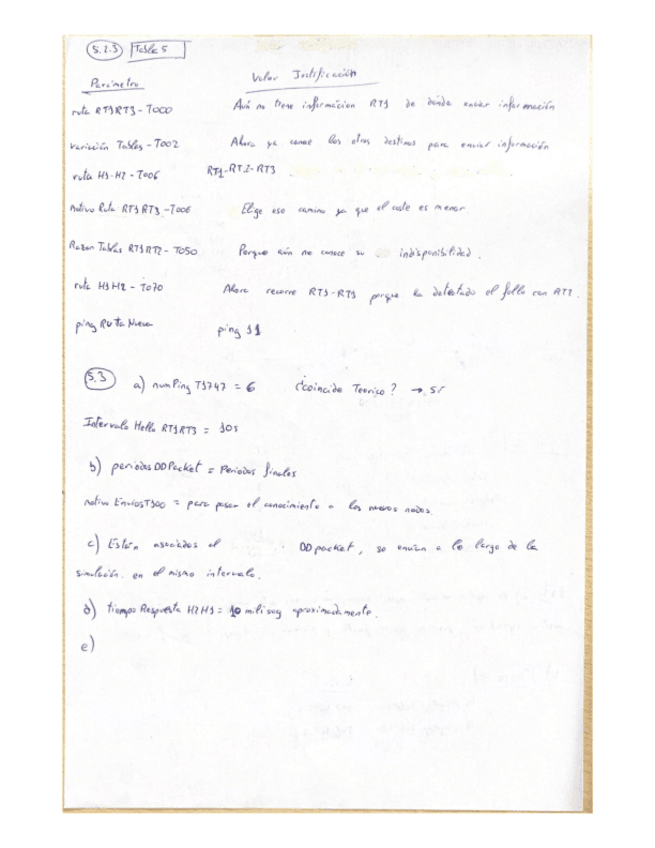 5.2.3 Tabla 5
Parámetro Valor Justificación
ruta RT1RT3 - T000 Aún no tiene información RT1 de donde enviar información
variación Tablas - T002 Ahora ya conoce los otros destinos para enviar información
ruta H1-H2 - T006 RT1-RT2-RT3
motivo Ruta RT1RT3 - T006 Elige ese camino ya que el coste es menor
Razon Tablas RT1RT2 - T050 Porque aún no conoce su indisponibilidad.
ruta H1H2 - T070 Ahora recorre RT1-RT3 porque ha detectado el fallo con RT2.
ping Ruta Nueva ping 11
5.3 a) numPing T1747 = 6 ¿coincide Teorico? → Si
Intervalo Hello RT1RT3 = 10s
b) periodos DDPacket = Periodos finales
motivo EnviosT300 = para pasar el conocimiento a los nuevos nodos
c) Están asociados al DD packet, se envían a lo largo de la
simulación en el mismo intervalo.
d) tiempo Respuesta H2H1 = 10 miliseg aproximadamente.
e)